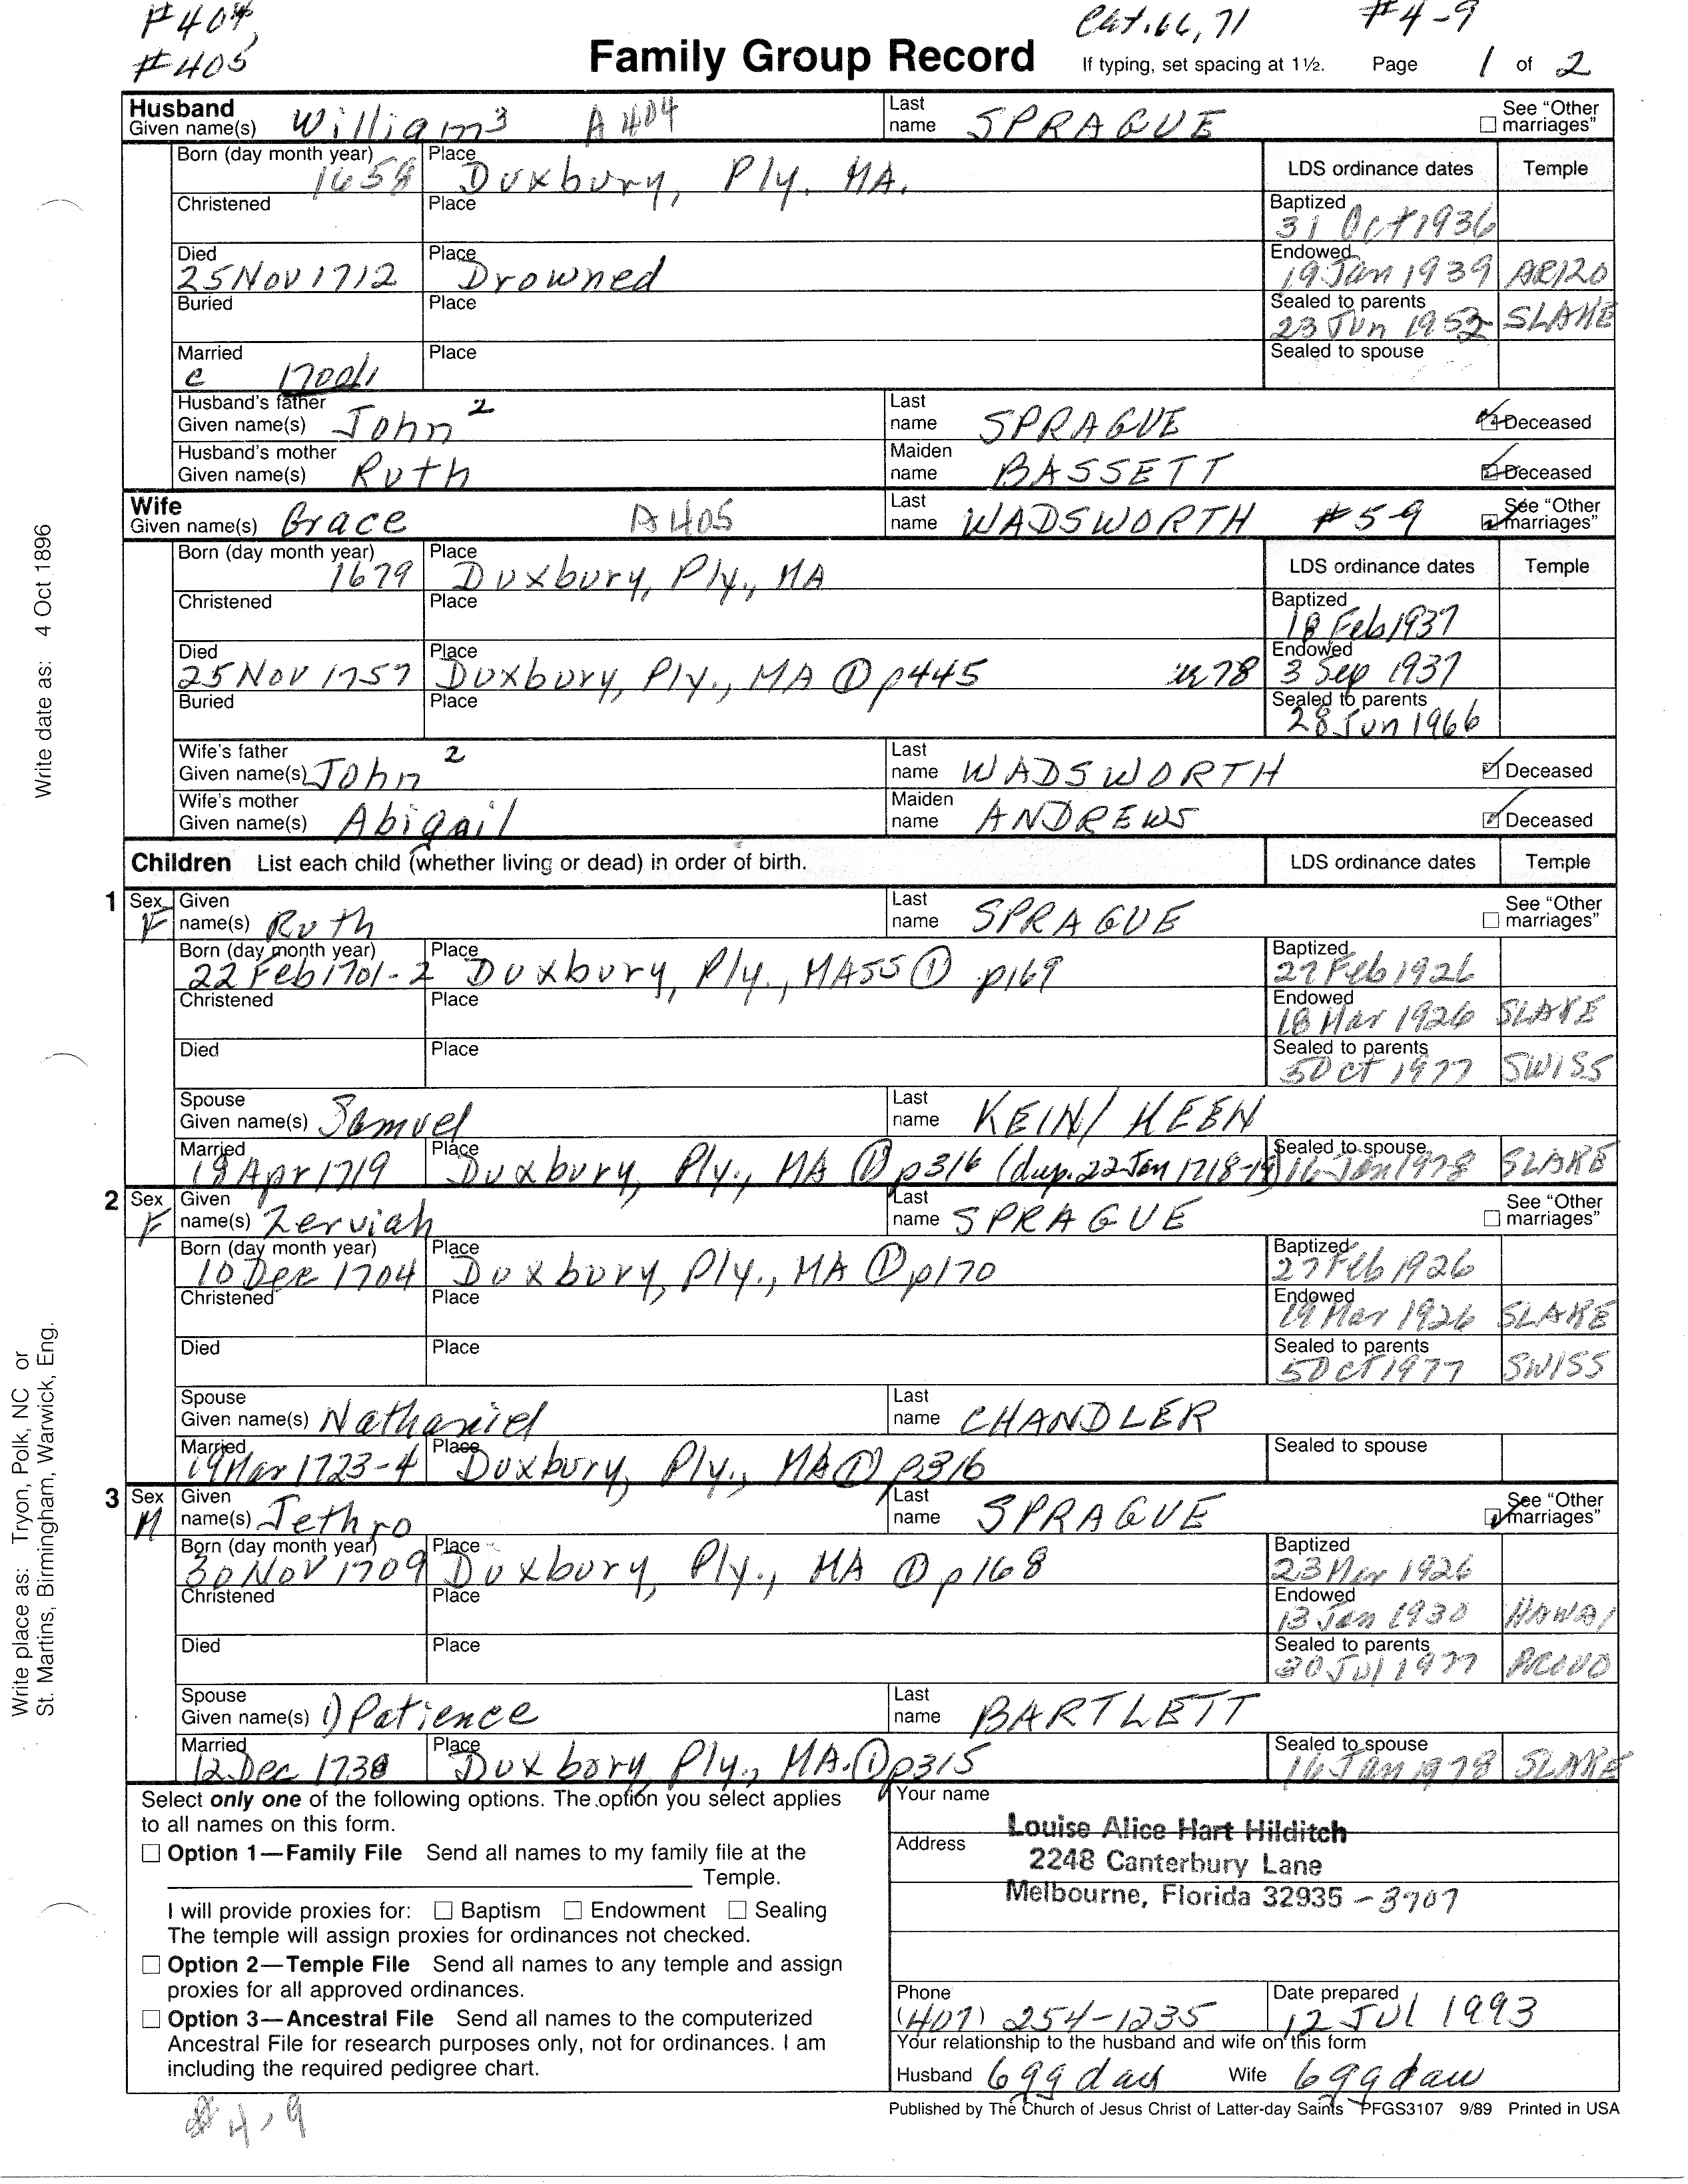 #404,
#405
Cht. 66, 71 #4-9
Family Group Record If typing, set spacing at 1½. Page 1 of 2
Husband
Given name(s) William³ A404 Last name SPRAGUE See "Other marriages"
Born (day month year) 1658 Place Duxbury, Ply. MA. LDS ordinance dates Temple
Christened Place Baptized 31 Oct 1936
Died 25 Nov 1712 Place Drowned Endowed 19 Jan 1939 ARIZO
Buried Place Sealed to parents 23 Jun 1952 SLAKE
Married c 1700/1 Place Sealed to spouse
Husband's father Given name(s) John² Last name SPRAGUE Deceased
Husband's mother Given name(s) Ruth Maiden name BASSETT Deceased
Wife
Given name(s) Grace A405 Last name WADSWORTH #5-9 See "Other marriages"
Born (day month year) 1679 Place Duxbury, Ply., MA LDS ordinance dates Temple
Christened Place Baptized 18 Feb 1937
Died 25 Nov 1757 Place Duxbury, Ply., MA ① p445 78 Endowed 3 Sep 1937
Buried Place Sealed to parents 28 Jun 1966
Wife's father Given name(s) John² Last name WADSWORTH Deceased
Wife's mother Given name(s) Abigail Maiden name ANDREWS Deceased
Children List each child (whether living or dead) in order of birth. LDS ordinance dates Temple
1 Sex F Given name(s) Ruth Last name SPRAGUE See "Other marriages"
Born (day month year) 22 Feb 1701-2 Place Duxbury, Ply., MASS ① p169 Baptized 27 Feb 1926
Christened Place Endowed 18 Mar 1926 SLAKE
Died Place Sealed to parents 5 Oct 1977 SWISS
Spouse Given name(s) Samuel Last name KEIN/KEEN
Married 18 Apr 1719 Place Duxbury, Ply., MA ① p316 (dup. 22 Jan 1718-19) Sealed to spouse 16 Jan 1978 SLAKE
2 Sex F Given name(s) Zerviah Last name SPRAGUE See "Other marriages"
Born (day month year) 10 Dec 1704 Place Duxbury, Ply., MA ① p170 Baptized 27 Feb 1926
Christened Place Endowed 19 Mar 1926 SLAKE
Died Place Sealed to parents 5 Oct 1977 SWISS
Spouse Given name(s) Nathaniel Last name CHANDLER
Married 19 Mar 1723-4 Place Duxbury, Ply., MA ① p316 Sealed to spouse
3 Sex M Given name(s) Jethro Last name SPRAGUE See "Other marriages"
Born (day month year) 30 Nov 1709 Place Duxbury, Ply., MA ① p168 Baptized 23 Mar 1926
Christened Place Endowed 13 Jan 1930 HAWAI
Died Place Sealed to parents 30 Jul 1977 PROVO
Spouse Given name(s) 1) Patience Last name BARTLETT
Married 12 Dec 1738 Place Duxbury, Ply., MA. ① p315 Sealed to spouse 16 Jan 1978 SLAKE
Select only one of the following options. The option you select applies
to all names on this form.
Option 1—Family File Send all names to my family file at the
Temple.
I will provide proxies for: Baptism Endowment Sealing
The temple will assign proxies for ordinances not checked.
Option 2—Temple File Send all names to any temple and assign
proxies for all approved ordinances.
Option 3—Ancestral File Send all names to the computerized
Ancestral File for research purposes only, not for ordinances. I am
including the required pedigree chart.
Your name Louise Alice Hart Hilditch
Address 2248 Canterbury Lane
Melbourne, Florida 32935 - 3707
Phone (407) 254-1235 Date prepared 12 JUl 1993
Your relationship to the husband and wife on this form
Husband 6 gg dau Wife 6 gg dau
Published by The Church of Jesus Christ of Latter-day Saints PFGS3107 9/89 Printed in USA
#4,9
Write date as: 4 Oct 1896
Write place as: Tryon, Polk, NC or
St. Martins, Birmingham, Warwick, Eng.